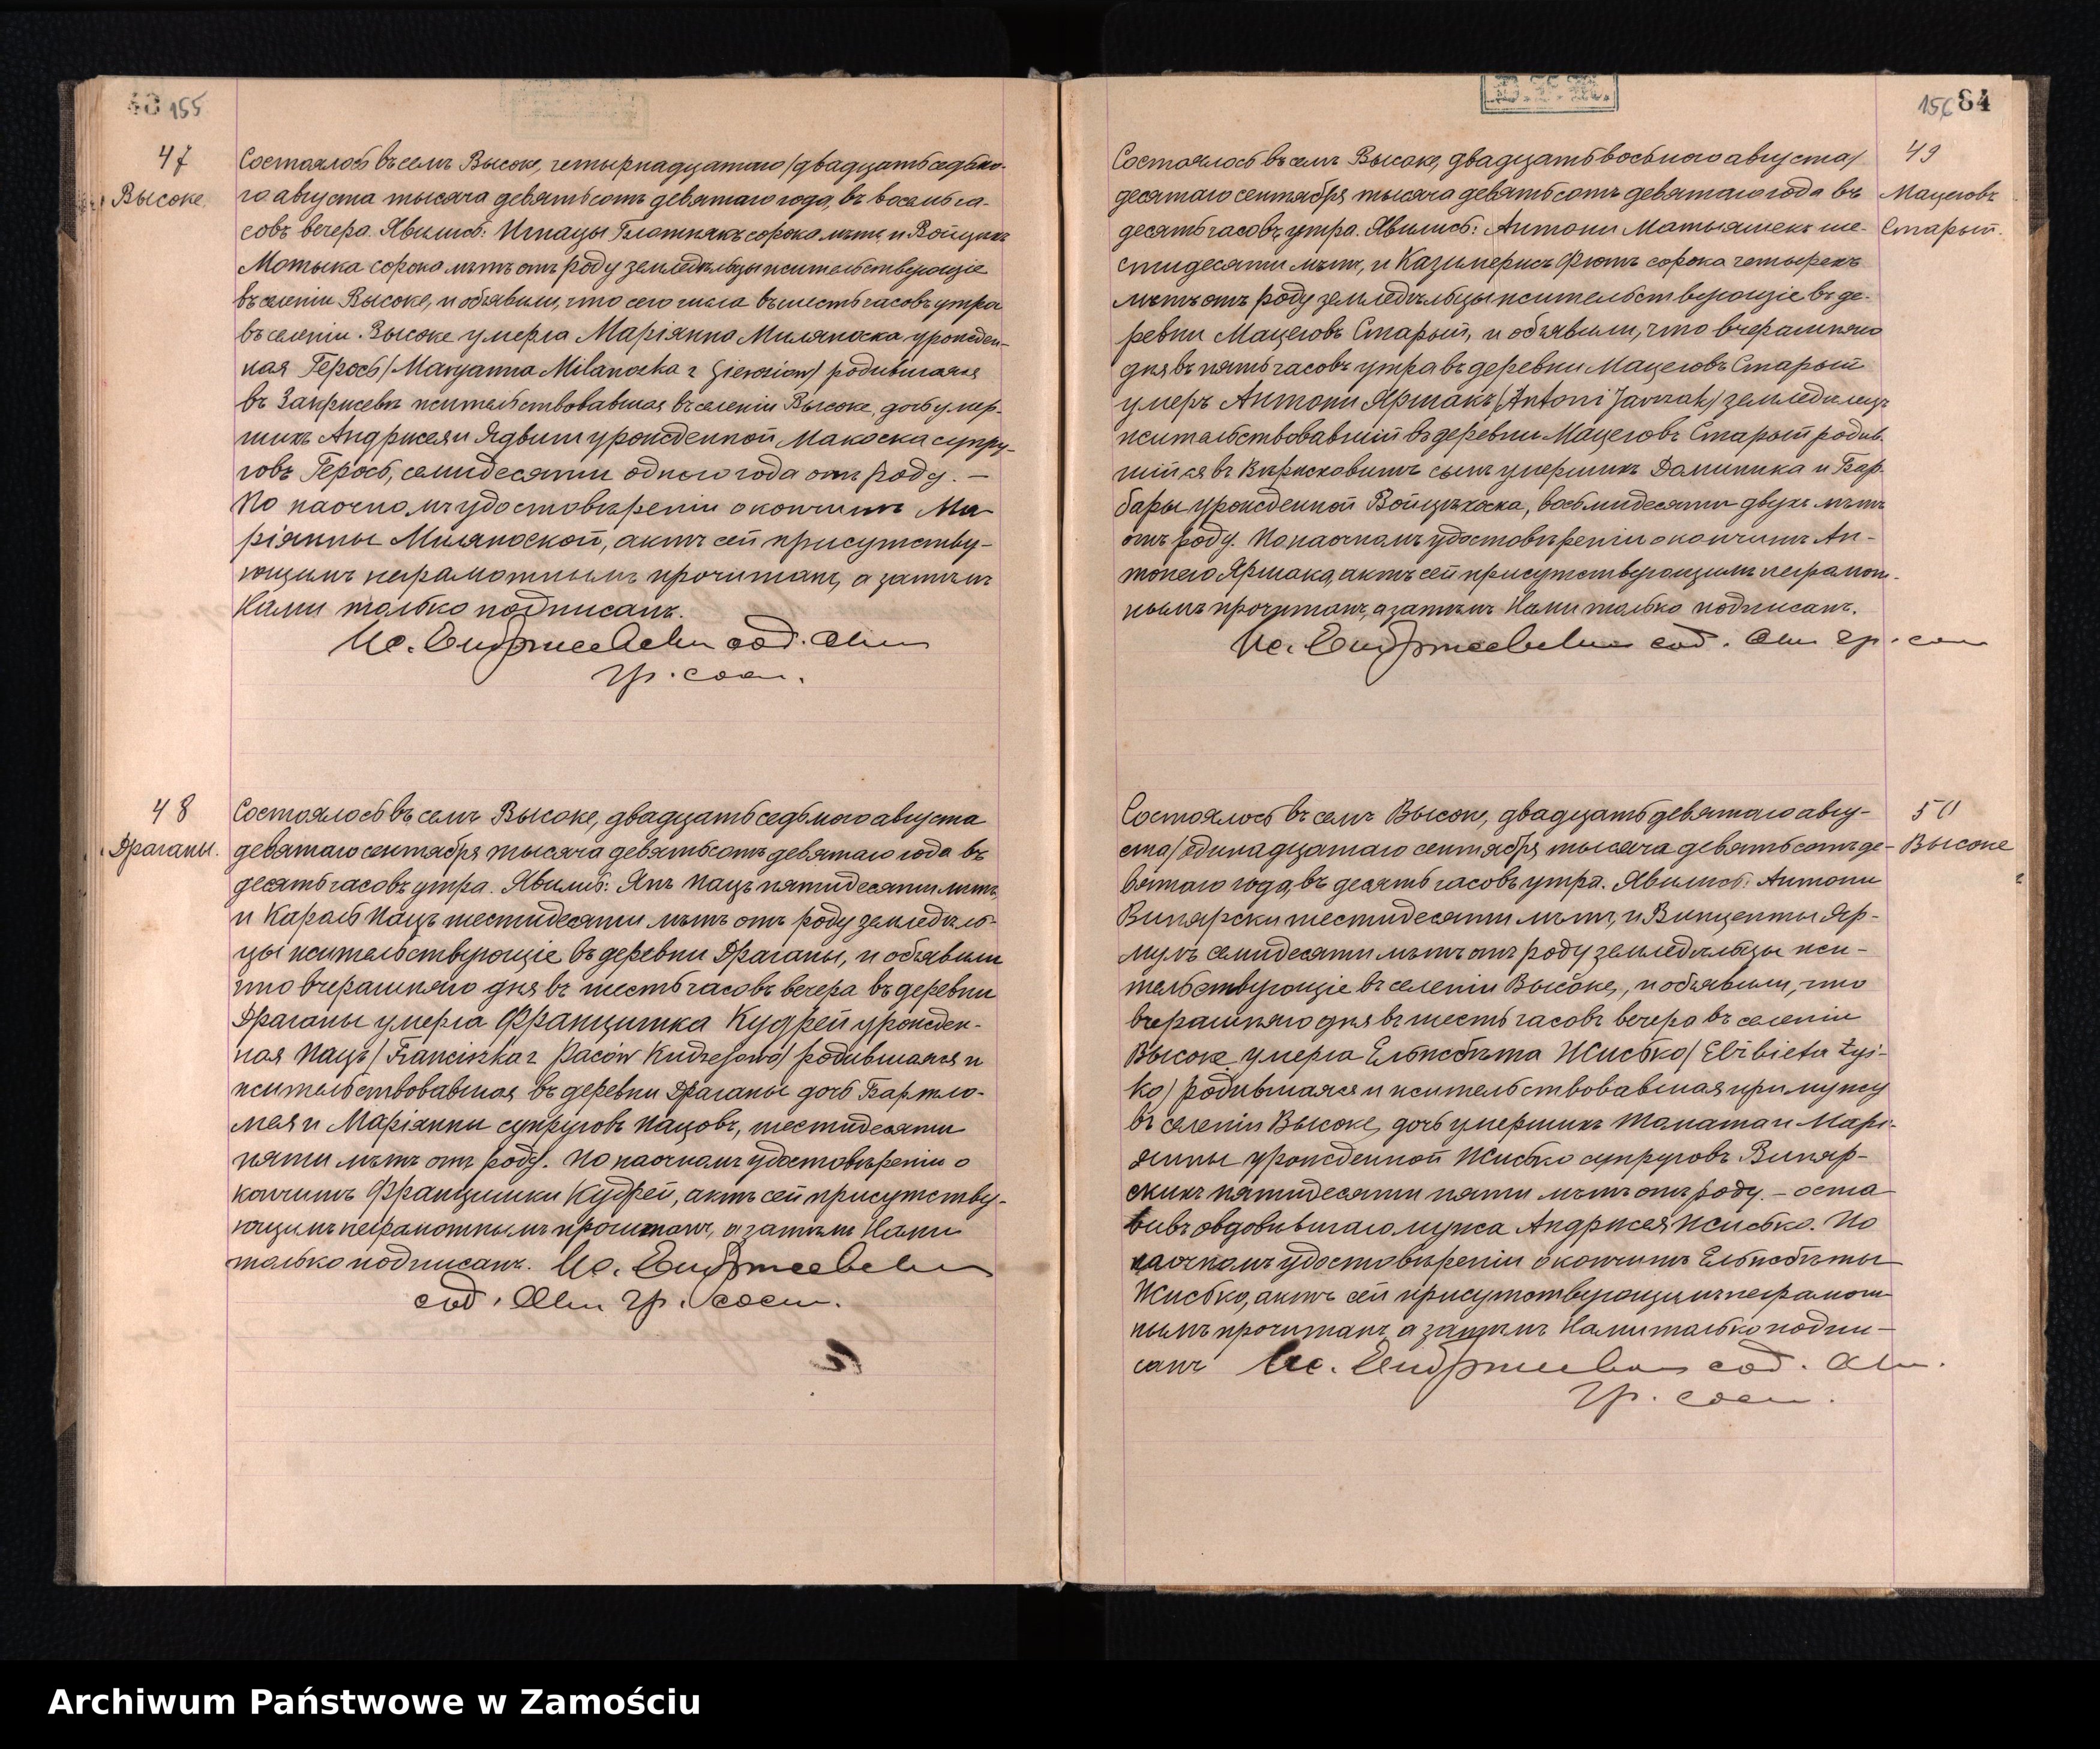 155
47
Высоке
Состоялось въ селѣ Высоке, четырнадцатаго/двадцать седьмо-
го августа тысяча девятьсотъ девятаго года, въ восемь ча-
совъ вечера. Явились: Игнацы Блотнякъ сорока лѣтъ, и Войцехъ
Мотыка сорока лѣтъ отъ роду земледѣльцы жительствующіе
въ селеніи Высоке, и объявили, что сего числа въ шесть часовъ утра
въ селеніи Высоке умерла Маріянна Миляноска урожден-
ная Герось/Maryanna Milanoska z Gierosiow/ родившаяся
въ Закржевѣ жительствовавшая въ селеніи Высоке, дочь умер-
шихъ Андржея и Ядвиги урожденной Макоска супру-
говъ Герось, семидесяти одного года отъ роду. —
По наочномъ удостовѣреніи о кончинѣ Ма-
ріянны Миляноской, актъ сей присутству-
ющимъ неграмотнымъ прочитанъ, а затѣмъ
Нами только подписанъ.
Кс. Ендржеевски сод. акты
гр. сост.
48
Драганы.
Состоялось въ селѣ Высоке, двадцать седьмого августа
девятаго сентября тысяча девятьсотъ девятаго года въ
десять часовъ утра. Явились: Янъ Пацъ пятидесяти лѣтъ,
и Кароль Пацъ шестидесяти лѣтъ отъ роду земледѣль-
цы жительствующіе въ деревни Драганы, и объявили
что вчерашняго дня въ шесть часовъ вечера въ деревни
Драганы умерла Францишка Кудрей урожден-
ная Пацъ/Franciszka z Paców Kudrejowa/ родившаяся и
жительствовавшая въ деревни Драганы дочь Бартло-
мея и Маріянны супруговъ Пацовъ, шестидесяти
пяти лѣтъ отъ роду. По наочномъ удостовѣреніи о
кончинѣ Францишки Кудрей, актъ сей присутству-
ющимъ неграмотнымъ прочитанъ, а затѣмъ Нами
только подписанъ. Кс. Ендржеевски
сод. акты гр. сост.
156 84
49
Мацеювъ
Старый.
Состоялось въ селѣ Высоке, двадцать восьмого августа/
десятаго сентября тысяча девятьсотъ девятаго года въ
десять часовъ утра. Явились: Антони Матыяшекъ ше-
стидесяти лѣтъ, и Казимержъ Фютъ сорока четырехъ
лѣтъ отъ роду земледѣльцы жительствующіе въ де-
ревни Мацеювъ Старый, и объявили, что вчерашняго
дня въ пять часовъ утра въ деревни Мацеювъ Старый
умеръ Антони Яршакъ/Antoni Jarszak/ земледѣлецъ
жительствовавшій въ деревни Мацеювъ Старый родив-
шійся въ Вержховинѣ сынъ умершихъ Доминика и Бар-
бары урожденной Войцѣхоска, восьмидесяти двухъ лѣтъ
отъ роду. По наочномъ удостовѣреніи о кончинѣ Ан-
тонего Яршака, актъ сей присутствующимъ неграмот-
нымъ прочитанъ, а затѣмъ Нами только подписанъ.
Кс. Ендржеевски сод. акты гр. сост.
50
Высоке
Состоялось въ селѣ Высоке, двадцать девятаго авгу-
ста/одинадцатаго сентября тысяча девятьсотъ де-
вятаго года, въ десять часовъ утра. Явились: Антони
Винярски шестидесяти лѣтъ, и Винценты Яр-
мулъ семидесяти лѣтъ отъ роду земледѣльцы жи-
тельствующіе въ селеніи Высоке, и объявили, что
вчерашняго дня въ шесть часовъ вечера въ селеніи
Высоке умерла Ельжбѣта Жисько/Elżbieta Żyś-
ko/ родившаяся и жительствовавшая при мужу
въ селеніи Высоке, дочь умершихъ Томаша и Марі-
янны урожденной Жисько супруговъ Виняр-
скихъ пятидесяти пяти лѣтъ отъ роду. — оста
вивъ овдовѣвшаго мужа Андржея Жисько. По
наочномъ удостовѣреніи о кончинѣ Ельжбѣты
Жисько, актъ сей присутствующимъ неграмот-
нымъ прочитанъ а затѣмъ Нами только подпи-
санъ Кс. Ендржеевски сод. акты.
гр. сост.
Archiwum Państwowe w Zamościu